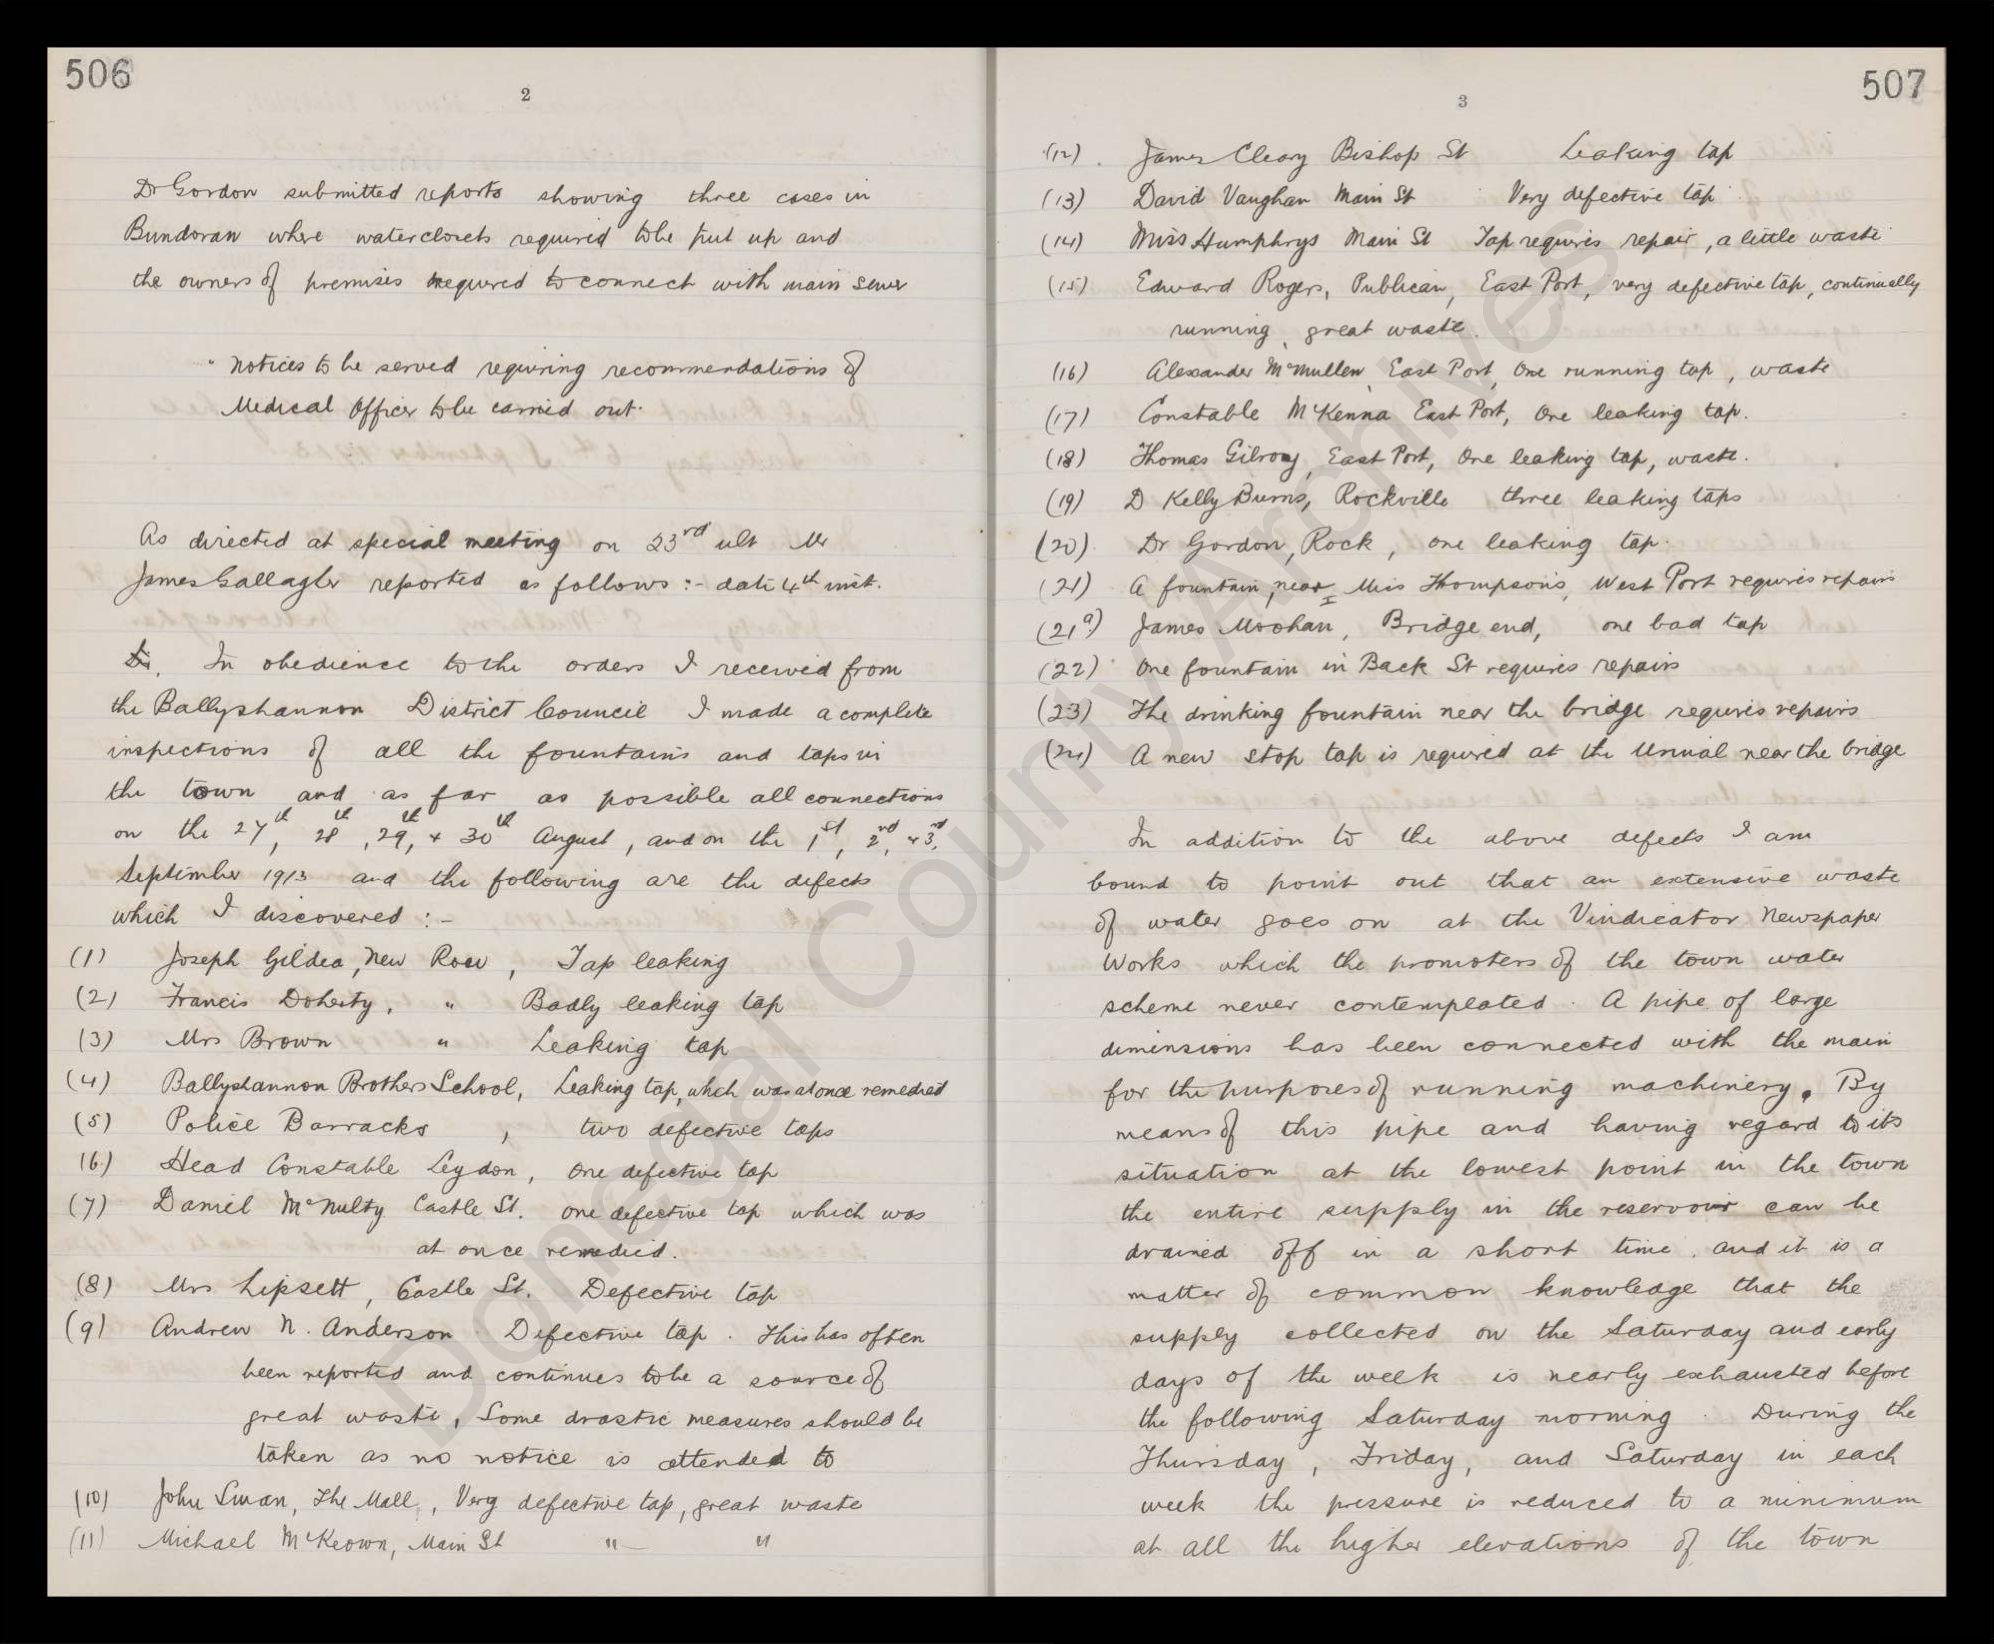 506
2
Dr Gordon submitted reports showing three cases in
Bundoran where waterclosets required to be put up and
the owners of premises required to connect with main sewer
" Notices to be served requiring recommendations of
Medical Officer to be carried out.
As directed at special meeting on 23rd ult Mr
James Gallagher reported as follows :- date 4th inst.
In obedience to the orders I received from
the Ballyshannon District Council I made a complete
inspections of all the fountains and taps in
the town and as far as possible all connections
on the 27th, 28th, 29th, + 30th August, and on the 1st, 2nd, + 3rd,
September 1913 and the following are the defects
which I discovered :-
(1) Joseph Gildea, New Row, Tap leaking
(2) Francis Doherty, " Badly leaking tap
(3) Mrs Brown " Leaking tap
(4) Ballyshannon Brothers School, Leaking tap, which was at once remedied
(5) Police Barracks , two defective taps
(6) Head Constable Leydon, one defective tap
(7) Daniel McNulty Castle St. one defective tap which was
at once remedied.
(8) Mrs Lipsett, Castle St. Defective tap
(9) Andrew N. Anderson Defective tap. This has often
been reported and continues to be a source of
great waste, Some drastic measures should be
taken as no notice is attended to
(10) John Swan, The Mall, Very defective tap, great waste
(11) Michael McKeown, Main St " "
507
3
(12) James Cleary Bishop St Leaking tap
(13) David Vaughan Main St Very defective tap
(14) Miss Humphrys Main St Tap requires repair, a little waste
(15) Edward Rogers, Publican, East Port, very defective tap, continually
running, great waste.
(16) Alexander McMullen, East Port, One running tap, waste
(17) Constable McKenna East Port, One leaking tap.
(18) Thomas Gilroy, East Port, One leaking tap, waste.
(19) D Kelly Burns, Rockville three leaking taps
(20) Dr Gordon, Rock, one leaking tap.
(21) A fountain, near, Miss Thompson's, West Port requires repairs
(21a) James Moohan, Bridge end, one bad tap
(22) One fountain in Back St requires repairs
(23) The drinking fountain near the bridge requires repairs
(24) A new stop tap is required at the Urinal near the bridge
In addition to the above defects I am
bound to point out that an extensive waste
of water goes on at the Vindicator Newspaper
Works which the promoters of the town water
scheme never contemplated. A pipe of large
dimensions has been connected with the main
for the purposes of running machinery. By
means of this pipe and having regard to its
situation at the lowest point in the town
the entire supply in the reservoir can be
drained off in a short time, and it is a
matter of common knowledge that the
supply collected on the Saturday and early
days of the week is nearly exhausted before
the following Saturday morning. During the
Thursday, Friday, and Saturday in each
week the pressure is reduced to a minimum
at all the higher elevations of the town
Donegal County Archives